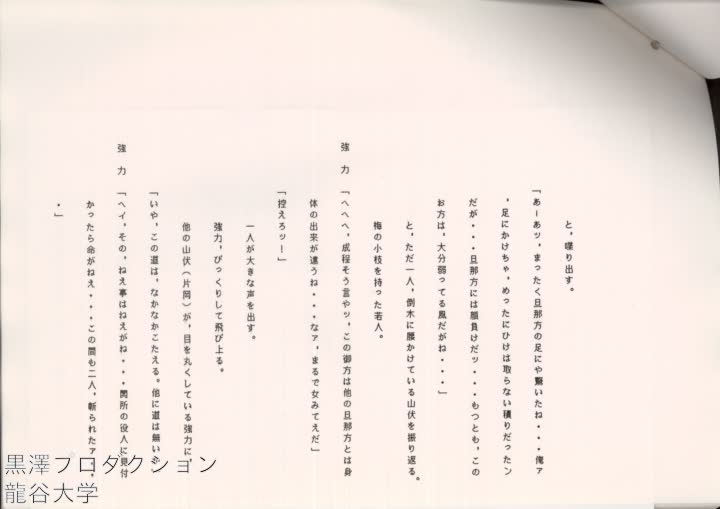 と，喋り出す。
「あーあッ，まったく旦那方の足にや驚いたね・・・俺ァ
，足にかけちゃ，めったにひけは取らない積りだったン
だが・・・旦那方には顔負けだッ・・・もつとも，この
お方は，大分弱ってる風だがね・・・」
と，ただ一人，倒木に腰かけている山伏を振り返る。
梅の小枝を持った若人。
強　力　「へへへ，成程そう言やッ，この御方は他の旦那方とは身
体の出来が違うね・・・なァ，まるで女みてえだ」
「控えろッー」
一人が大きな声を出す。
強力，びっくりして飛び上る。
他の山伏（片岡）が，目を丸くしている強力に，
「いや，この道は，なかなかこたえる。他に道は無い
強　力　「ヘイ，その，ねえ事はねえがね・・・関所の役人に見付
かったら命がねえ・・・この間も二人，斬られたァ
・」
黒澤プロダクション
龍谷大学